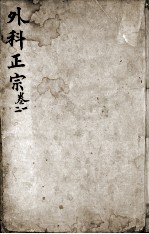 外科正宗
卷二